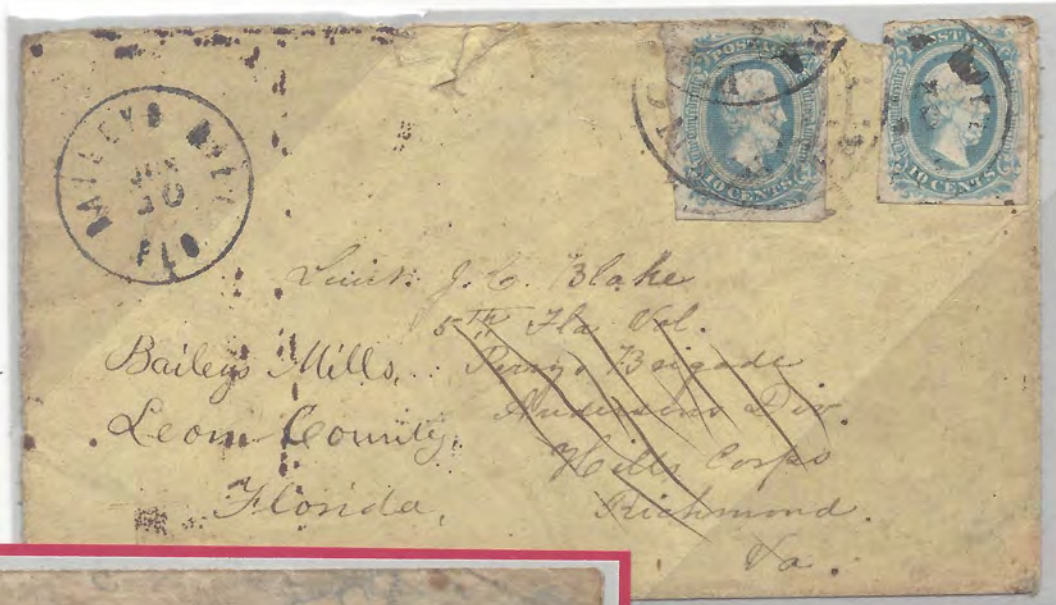 BAILEYS MILL
JAN
20
FLO
POSTAGE
10 CENTS
10 CENTS
Lieut. J. C. Blake
5TH Fla Vol.
Perrys Brigade
Andersons Div.
Hills Corps
Richmond.
Va.
Baileys Mills,
Leon County,
Florida,